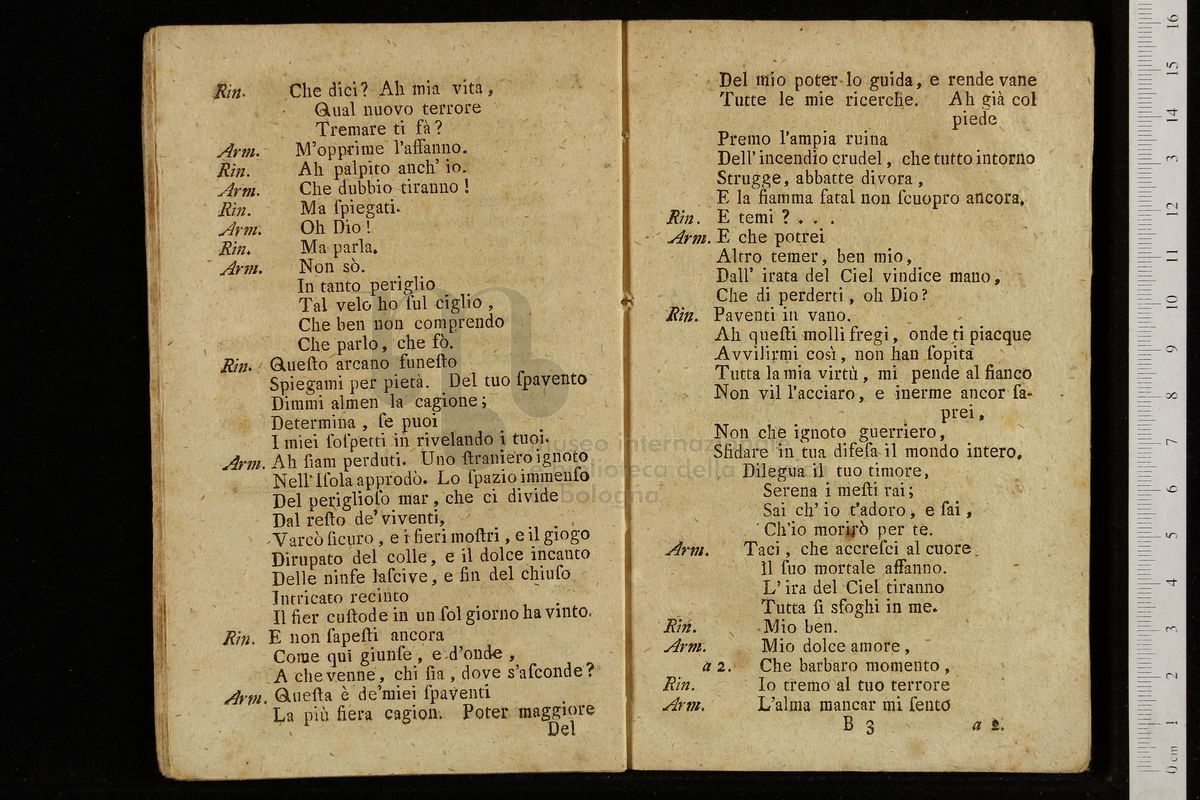 Rin. Che dici? Ah mia vita,
Qual nuovo terrore
Tremare ti fà?
Arm. M'opprime l'affanno.
Rin. Ah palpito anch' io.
Arm. Che dubbio tiranno!
Rin. Ma ſpiegati.
Arm. Oh Dio!
Rin. Ma parla.
Arm. Non sò.
In tanto periglio
Tal velo ho ſul ciglio,
Che ben non comprendo
Che parlo, che fò.
Rin. Queſto arcano funeſto
Spiegami per pietà. Del tuo ſpavento
Dimmi almen la cagione;
Determina, ſe puoi
I miei ſoſpetti in rivelando i tuoi.
Arm. Ah ſiam perduti. Uno ſtraniero ignoto
Nell'Iſola approdò. Lo ſpazio immenſo
Del periglioſo mar, che ci divide
Dal reſto de' viventi,
Varcò ſicuro, e i fieri moſtri, e il giogo
Dirupato del colle, e il dolce incanto
Delle ninfe laſcive, e fin del chiuſo
Intricato recinto
Il fier cuſtode in un ſol giorno ha vinto.
Rin. E non ſapeſti ancora
Come qui giunſe, e d'onde,
A che venne, chi ſia, dove s'aſconde?
Arm. Queſta è de'miei ſpaventi
La più fiera cagion. Poter maggiore
Del
Del mio poter lo guida, e rende vane
Tutte le mie ricerche. Ah già col
piede
Premo l'ampia ruina
Dell' incendio crudel, che tutto intorno
Strugge, abbatte divora,
E la fiamma fatal non ſcuopro ancora.
Rin. E temi? . . .
Arm. E che potrei
Altro temer, ben mio,
Dall' irata del Ciel vindice mano,
Che di perderti, oh Dio?
Rin. Paventi in vano.
Ah queſti molli fregi, onde ti piacque
Avvilirmi così, non han ſopita
Tutta la mia virtù, mi pende al fianco
Non vil l'acciaro, e inerme ancor ſa-
prei,
Non che ignoto guerriero,
Sfidare in tua difeſa il mondo intero.
Dilegua il tuo timore,
Serena i meſti rai;
Sai ch' io t'adoro, e ſai,
Ch'io morirò per te.
Arm. Taci, che accreſci al cuore
Il ſuo mortale affanno.
L' ira del Ciel tiranno
Tutta ſi sfoghi in me.
Rin. Mio ben.
Arm. Mio dolce amore,
a 2. Che barbaro momento,
Rin. Io tremo al tuo terrore
Arm. L'alma mancar mi ſento
B 3 a 2.
museo internazionale
e biblioteca della musica
bologna
0 cm 1 2 3 4 5 6 7 8 9 10 11 12 13 14 15 16